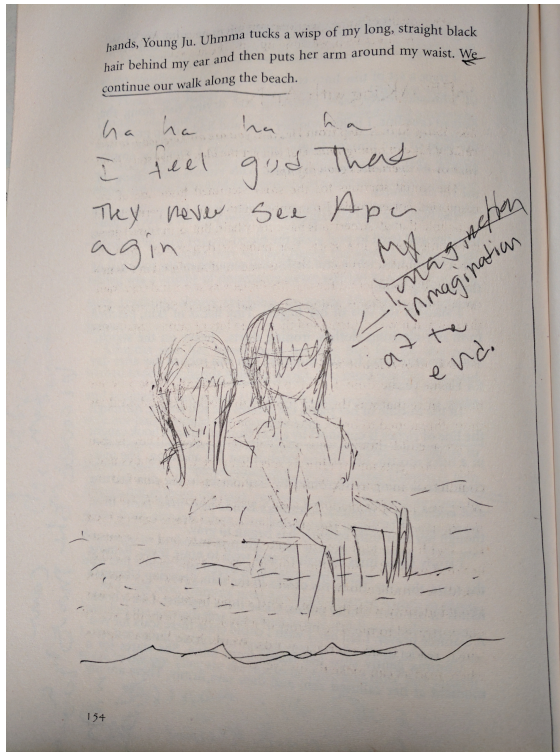 hands, Young Ju. Uhmma tucks a wisp of my long, straight black
hair behind my ear and then puts her arm around my waist. We
continue our walk along the beach.
ha ha ha ha
I feel good
They never see Apa
agin
My
imagination
inmagination
at te
end.
154